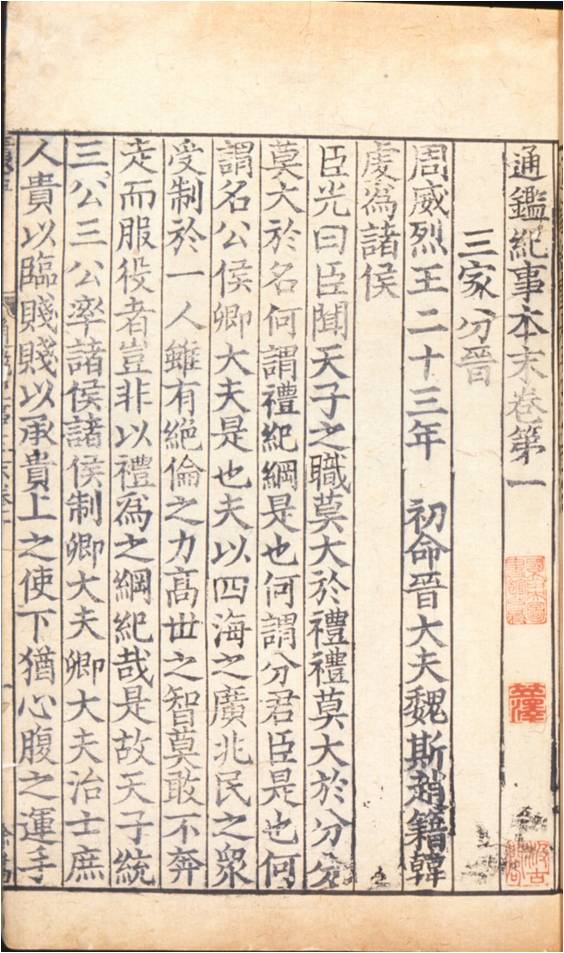 通鑑紀事本末卷第一
三家分晉
周威烈王二十三年 初命晉大夫魏斯趙籍韓
虔為諸侯
臣光曰臣聞天子之職莫大於禮禮莫大於分分
莫大於名何謂禮紀綱是也何謂分君臣是也何
謂名公侯卿大夫是也夫以四海之廣兆民之衆
受制於一人雖有絶倫之力高世之智莫敢不奔
走而服役者豈非以禮爲之綱紀哉是故天子統
三公三公率諸侯諸侯制卿大夫卿大夫治士庶
人貴以臨賤賤以承貴上之使下猶心腹之運手